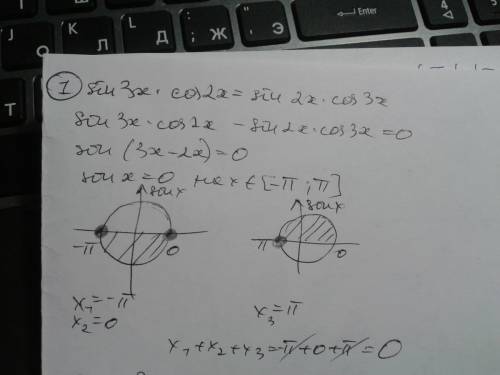 Enter
К
Л
Д
Ж
Э
Т
① sin 3x · cos2x = sin 2x · cos 3x
sin 3x · cos2x - sin 2x · cos 3x = 0
sin (3x-2x) = 0
sin x = 0 на x ∈ [-π ; π]
sin x
sin x
-π 0
π 0
x₁ = -π
x₂ = 0
x₃ = π
x₁ + x₂ + x₃ = -π + 0 + π = 0